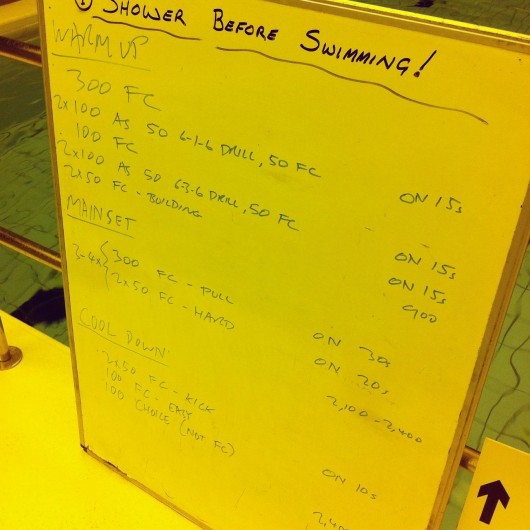 ① SHOWER BEFORE SWIMMING!
WARM UP
300 FC
2x100 AS 50 6-1-6 DRILL, 50 FC ON 15s
100 FC -
2x100 AS 50 6-3-6 DRILL, 50 FC ON 15s
2x50 FC - BUILDING ON 15s
900
MAINSET
3-4x { 300 FC - PULL ON 30s
2x50 FC - HARD ON 20s
2,100-2,400
COOL DOWN
2x50 FC - KICK ON 10s
100 FC - EASY
100 CHOICE (NOT FC)